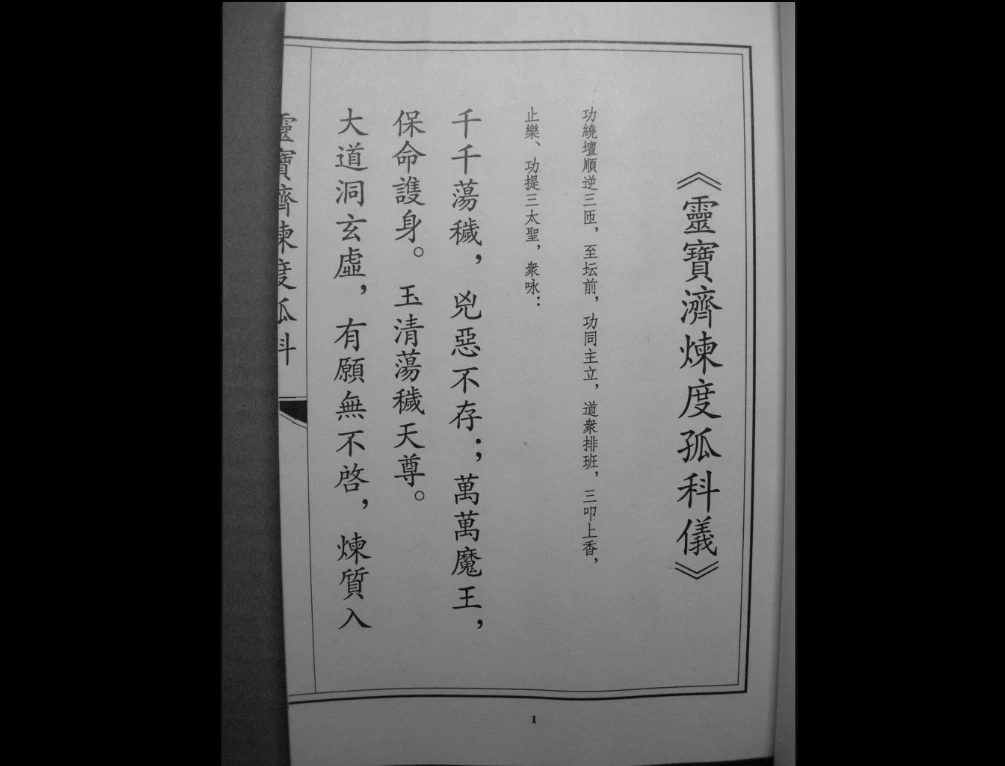 《靈寶濟煉度孤科儀》
功繞壇順逆三匝，至坛前，功同主立，道衆排班，三叩上香，
止樂、功提三太聖，衆咏：
千千蕩穢，兇惡不存；萬萬魔王，
保命護身。玉清蕩穢天尊。
大道洞玄虛，有願無不啓，煉質入
靈寶濟煉度孤科
1